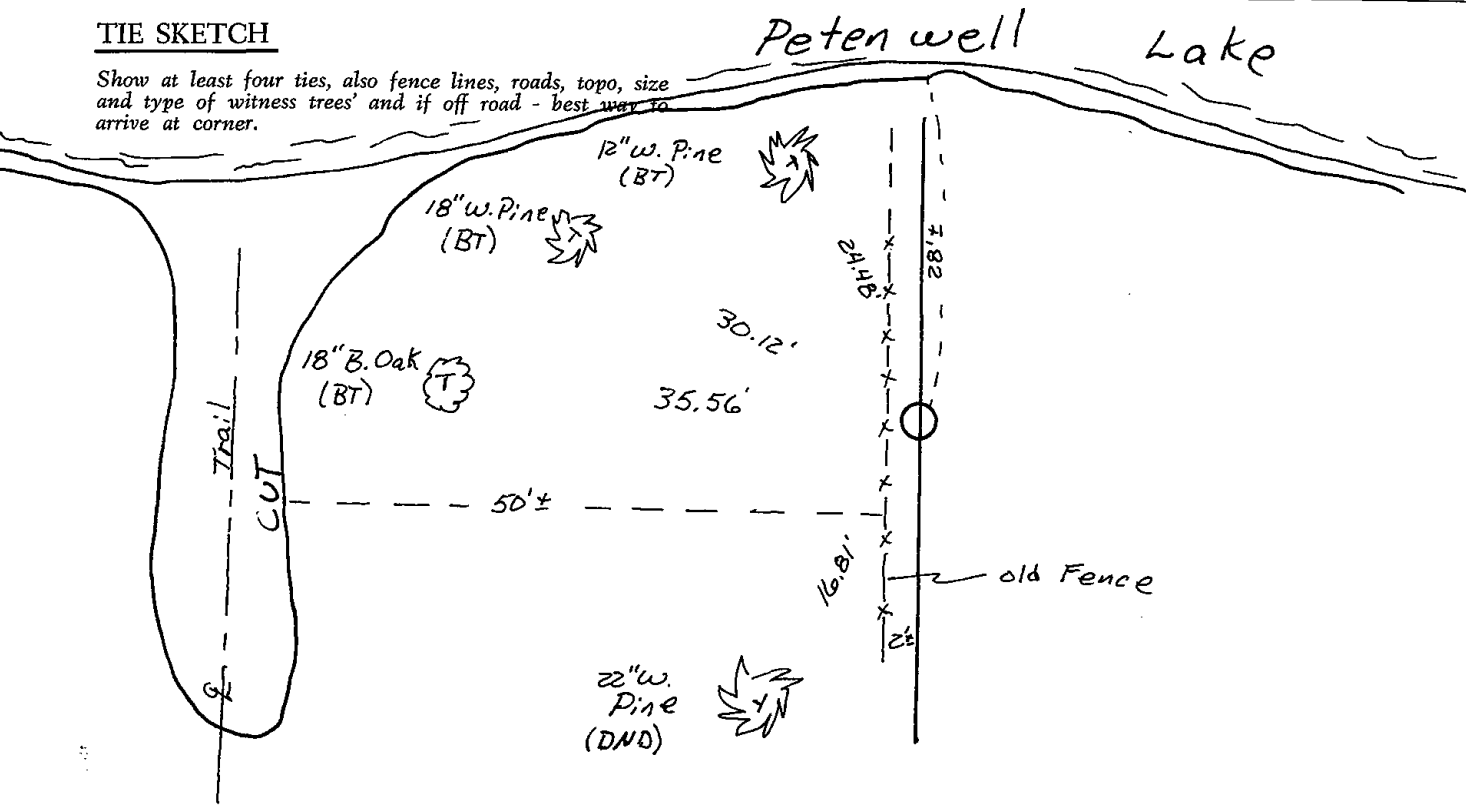 TIE SKETCH
Show at least four ties, also fence lines, roads, topo, size
and type of witness trees' and if off road - best way to
arrive at corner.
Petenwell Lake
12" W. Pine
(BT)
18" W. Pine
(BT)
24.48'
30.12'
18" B. Oak
(BT)
T
35.56'
Trail
CUT
50'±
16.81'
old Fence
2'±
22" W.
Pine
(DND)